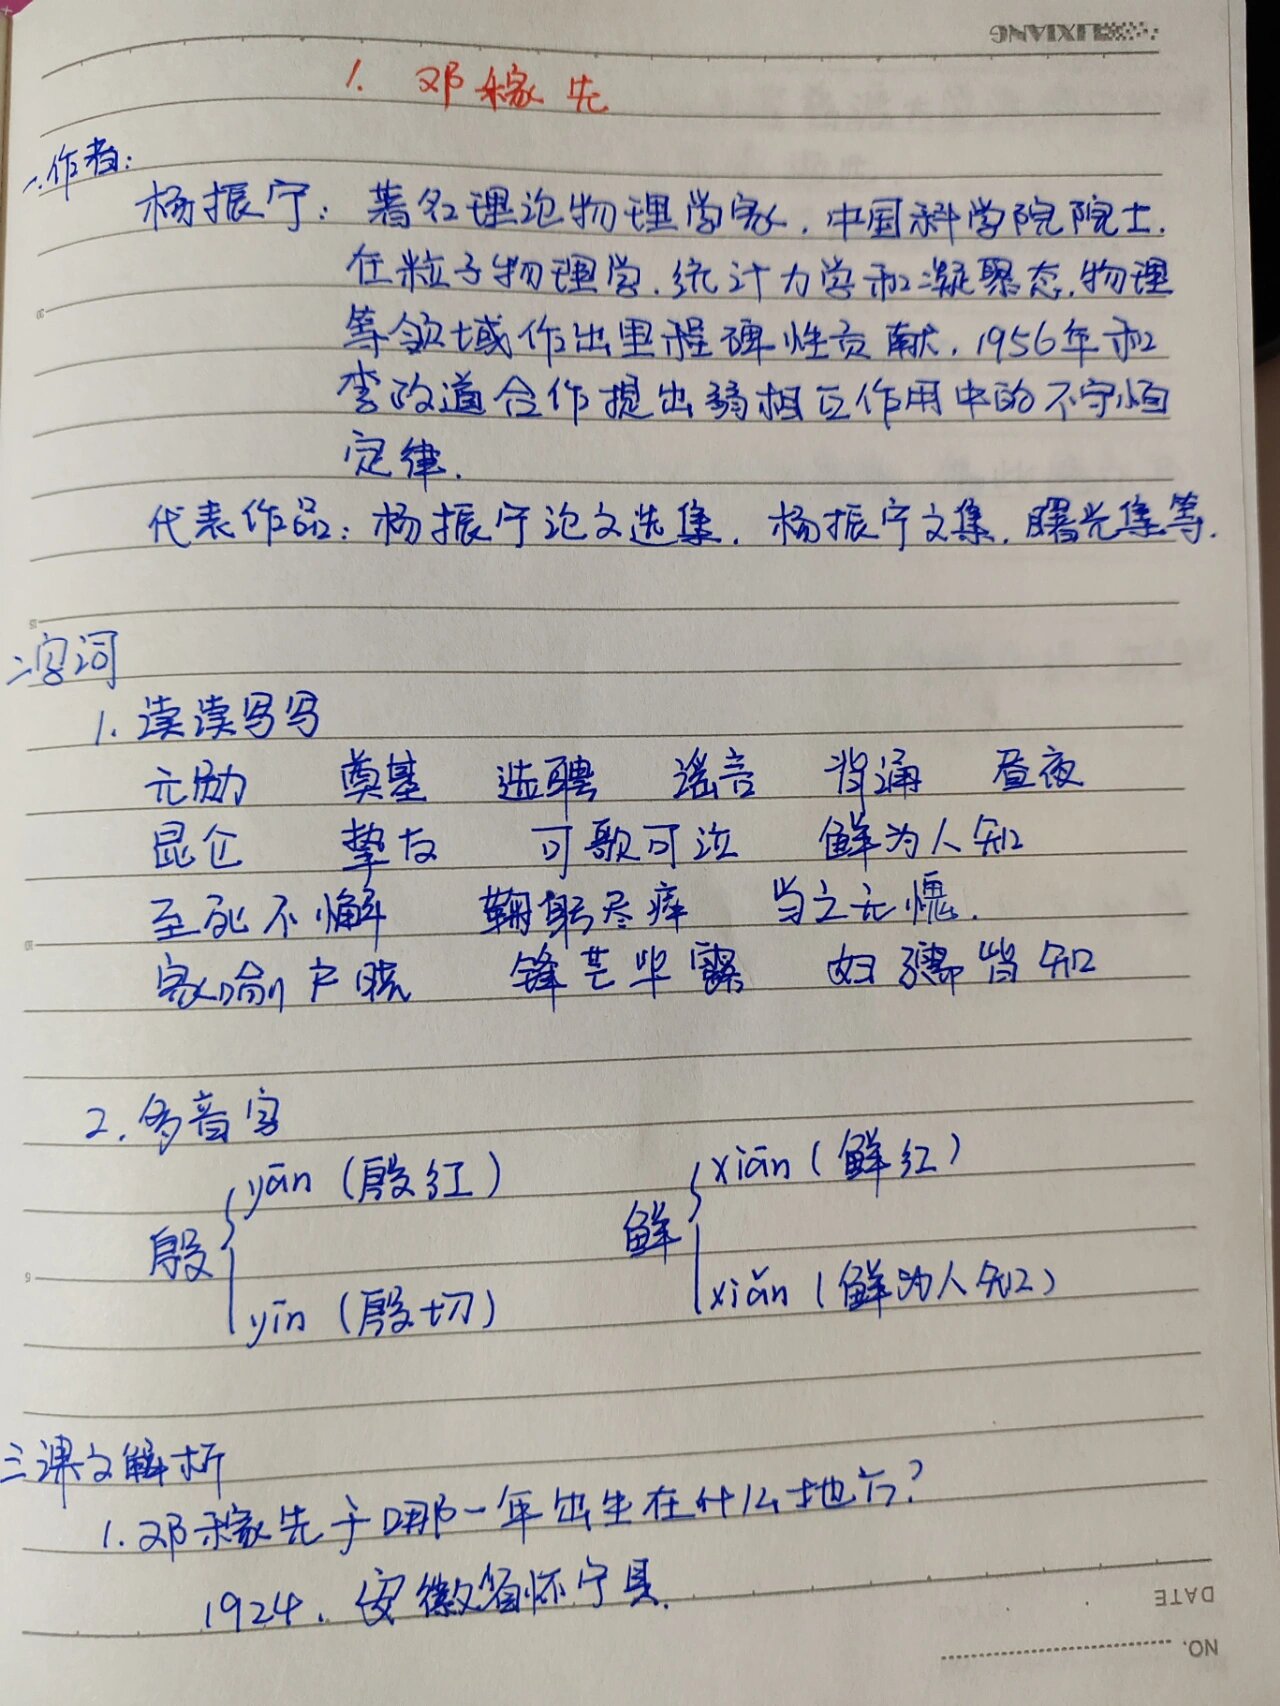 LIXIANG
1. 邓稼先
一.作者:
杨振宁: 著名理论物理学家. 中国科学院院士.
在粒子物理学.统计力学和凝聚态.物理
等领域作出里程碑性贡献. 1956年和
李政道合作提出弱相互作用中的不守恒
定律.
代表作品: 杨振宁论文选集. 杨振宁文集. 曙光集等.
二字词
1. 读读写写
元勋 奠基 选聘 谣言 背诵 昼夜
昆仑 挚友 可歌可泣 鲜为人知
至死不懈 鞠躬尽瘁 当之无愧.
家喻户晓 锋芒毕露 妇孺皆知
2. 多音字
yān (殷红) xiān (鲜红)
殷 鲜
yīn (殷切) xiǎn (鲜为人知)
三课文解析
1. 邓稼先于哪一年出生在什么地方?
1924. 安徽省怀宁县.
DATE
NO.